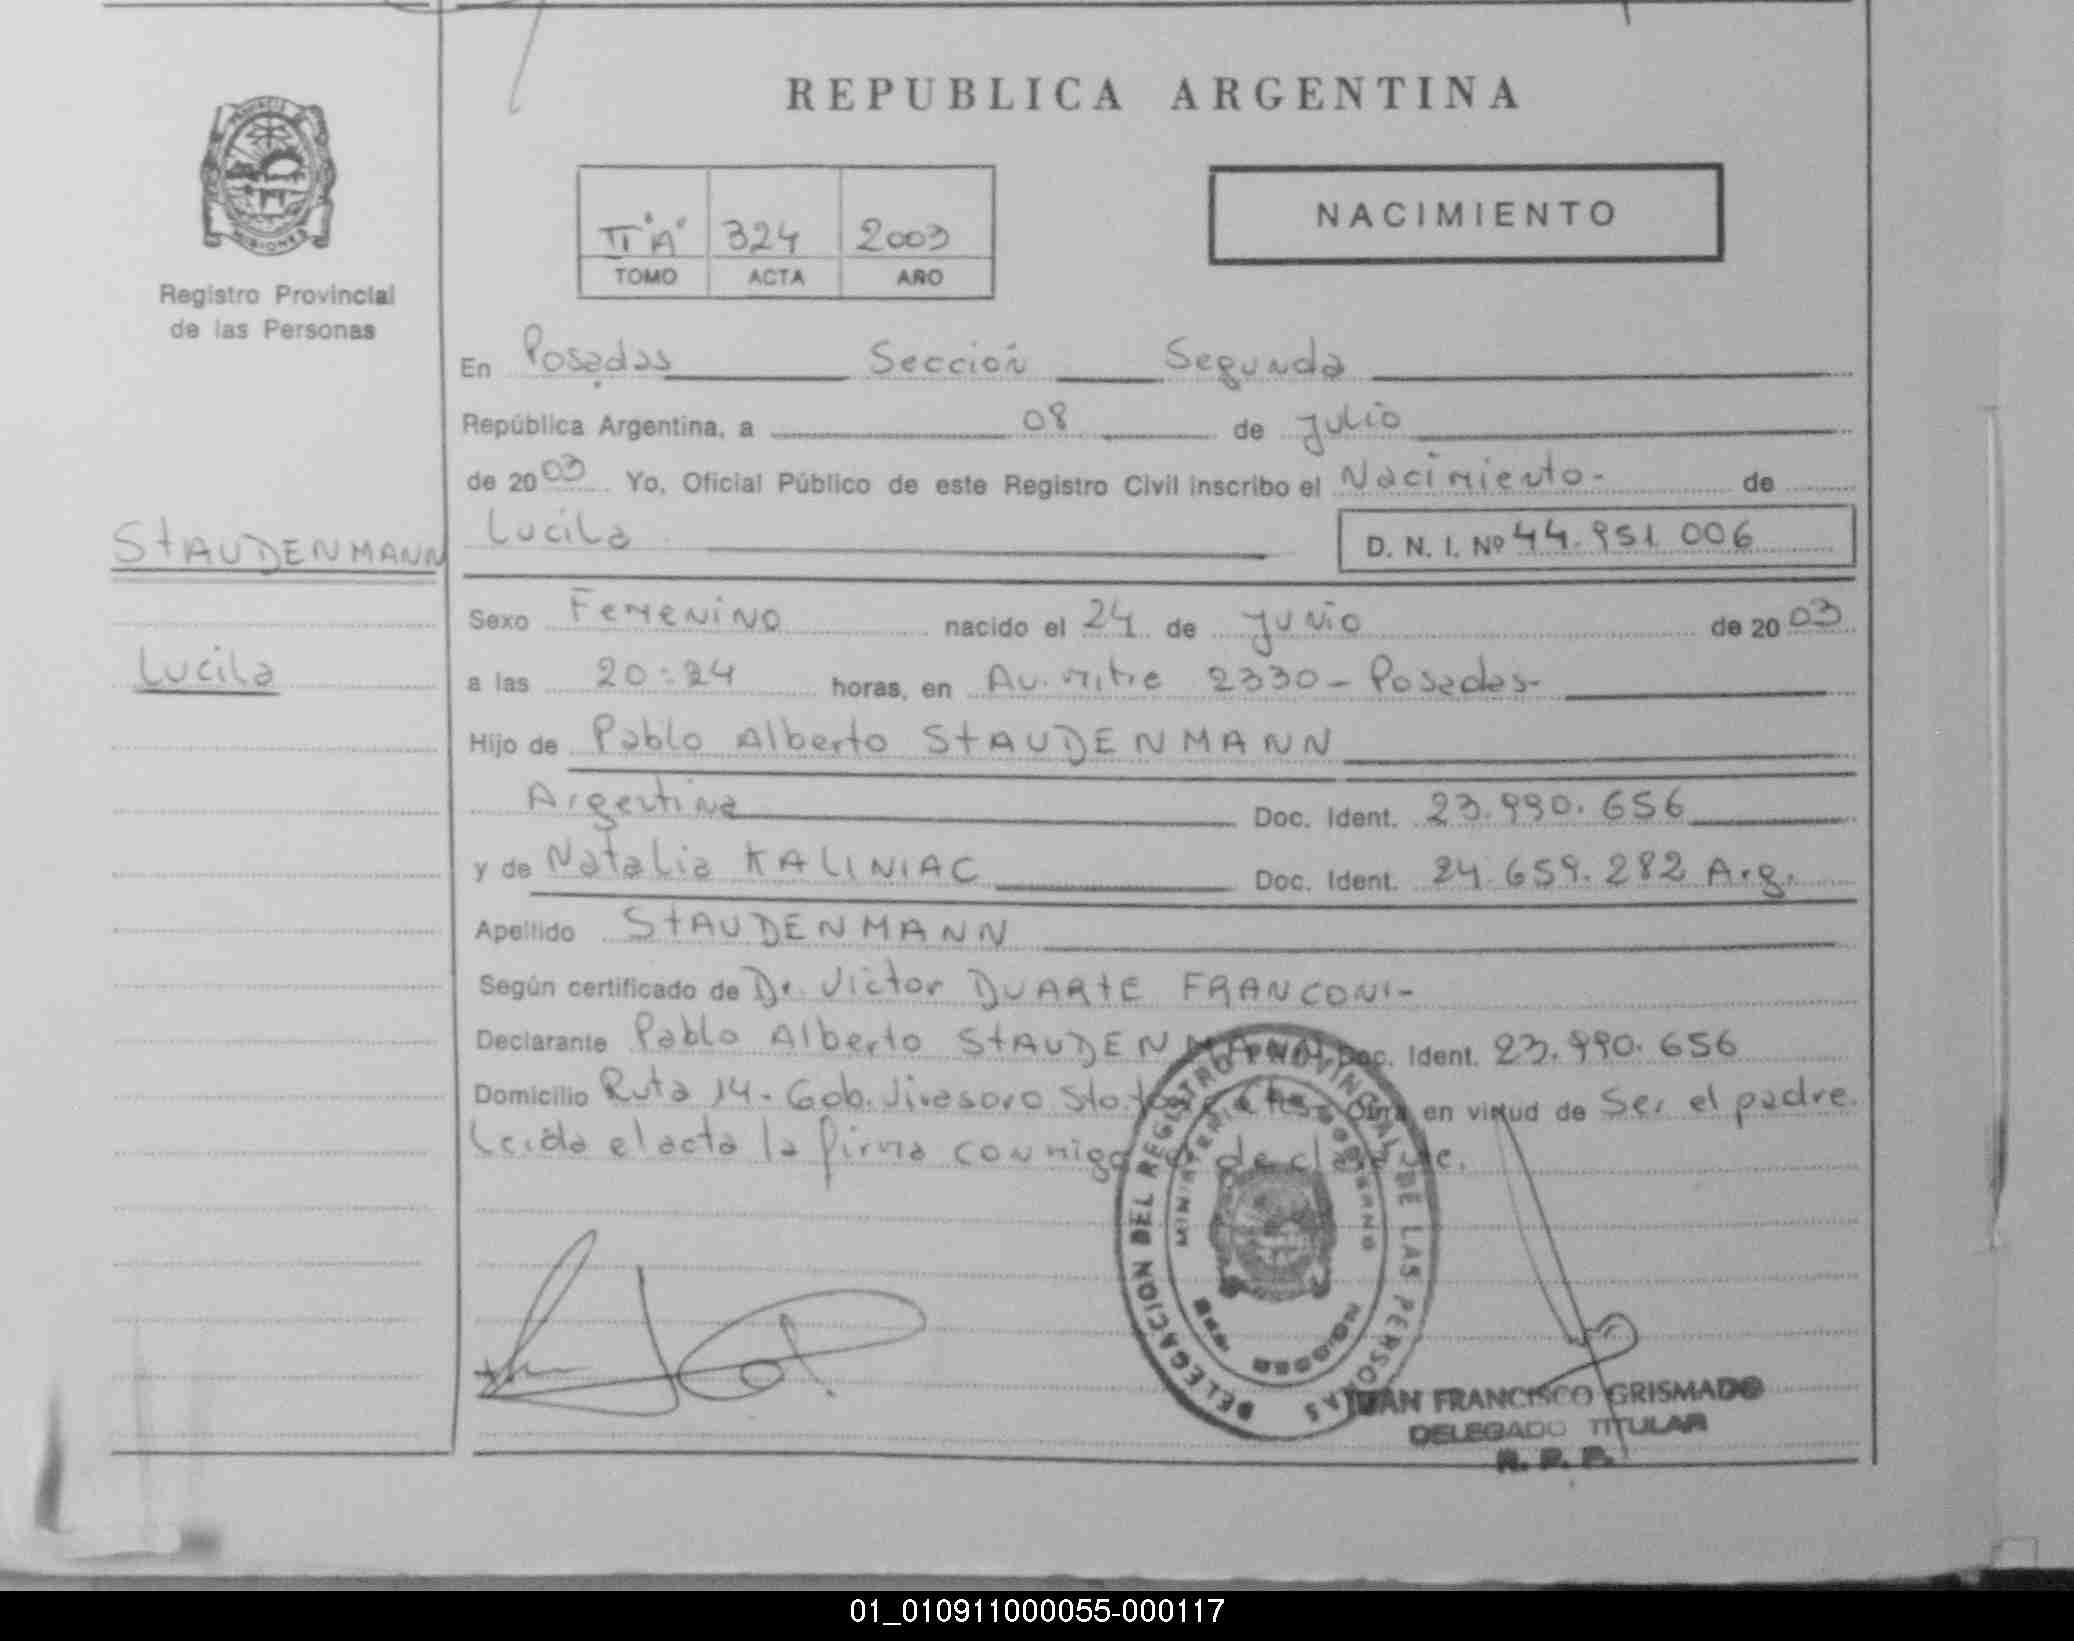 REPUBLICA ARGENTINA
PROVINCIA
MISIONES
Registro Provincial
de las Personas
II "A" 324 2003
TOMO ACTA AÑO
NACIMIENTO
En Posadas Sección Segunda
República Argentina, a 08 de julio
de 2003 Yo, Oficial Público de este Registro Civil inscribo el Nacimiento- de
STAUDENMANN
Lucila D. N. I. Nº 44.951.006
Sexo Femenino nacido el 24 de junio de 2003
Lucila
a las 20:24 horas, en Av. Mitre 2330- Posadas-
Hijo de Pablo Alberto STAUDENMANN
Argentina Doc. Ident. 23.990.656
y de Natalia KALINIAC Doc. Ident. 24.659.282 Arg.
Apellido STAUDENMANN
Según certificado de Dr. Victor DUARTE FRANCONI-
Declarante Pablo Alberto STAUDENMANN Doc. Ident. 23.990.656
Domicilio Ruta 14- Gob. Virasoro Sto. en virtud de Ser el padre.
Leida el acta la firma conmigo el declarante.
DELEGACION DEL REGISTRO PROVINCIAL DE LAS PERSONAS
MINISTERIO DE GOBIERNO
JUAN FRANCISCO GRISMADO
DELEGADO TITULAR
R. P. P.
01_010911000055-000117